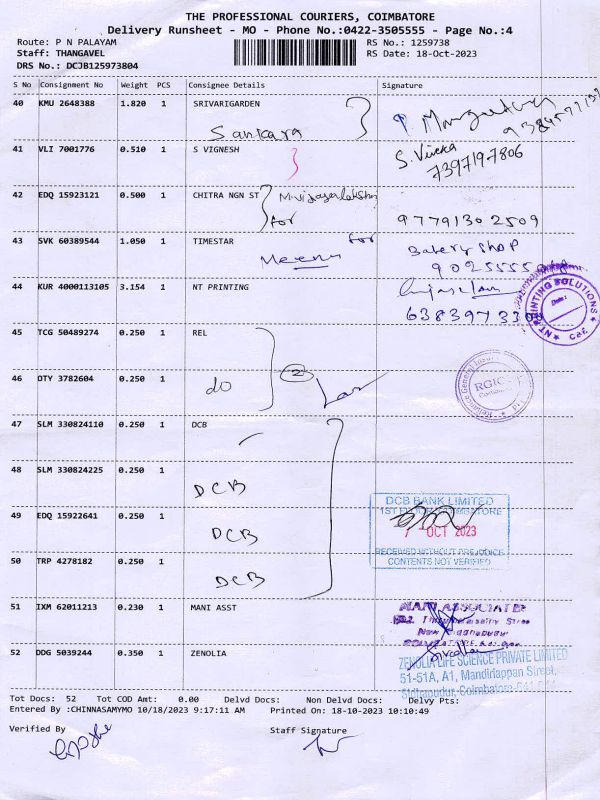 THE PROFESSIONAL COURIERS, COIMBATORE
Delivery Runsheet - MO - Phone No.:0422-3505555 - Page No.:4
Route: P N PALAYAM
RS No.: 1259738
Staff: THANGAVEL
RS Date: 18-Oct-2023
DRS No.: DCJB125973804
S No Consignment No Weight PCS Consignee Details Signature
40 KMU 2648388 1.820 1 SRIVARIGARDEN
Sankara
41 VLI 7001776 0.510 1 S VIGNESH
7397197806
42 EDQ 15923121 0.500 1 CHITRA NGN ST
for
97791302509
43 SVK 60389544 1.050 1 TIMESTAR
for
Bakery shop
Meenu
44 KUR 4000113105 3.154 1 NT PRINTING
NT PRINTING SOLUTIONS
Date:
CBE
45 TCG 50489274 0.250 1 REL
2
46 OTY 3782604 0.250 1
do
Reliance General
RGICL
47 SLM 330824110 0.250 1 DCB
48 SLM 330824225 0.250 1
DCB
DCB BANK LIMITED
49 EDQ 15922641 0.250 1
DCB
7 OCT 2023
RECEIVED WITHOUT PREJUDICE
CONTENTS NOT VERIFIED
50 TRP 4278182 0.250 1
DCB
51 IXM 62011213 0.230 1 MANI ASST
MANI ASSOCIATE
52 DDG 5039244 0.350 1 ZENOLIA
ZENOLIA LIFE SCIENCE PRIVATE LIMITED
51-51A, A1, Mandiriappan Street,
Sidhapudur, Coimbatore
Tot Docs: 52 Tot COD Amt: 0.00 Delvd Docs: Non Delvd Docs: Delvy Pts:
Entered By :CHINNASAMYMO 10/18/2023 9:17:11 AM Printed On: 18-10-2023 10:10:49
Verified By
Staff Signature